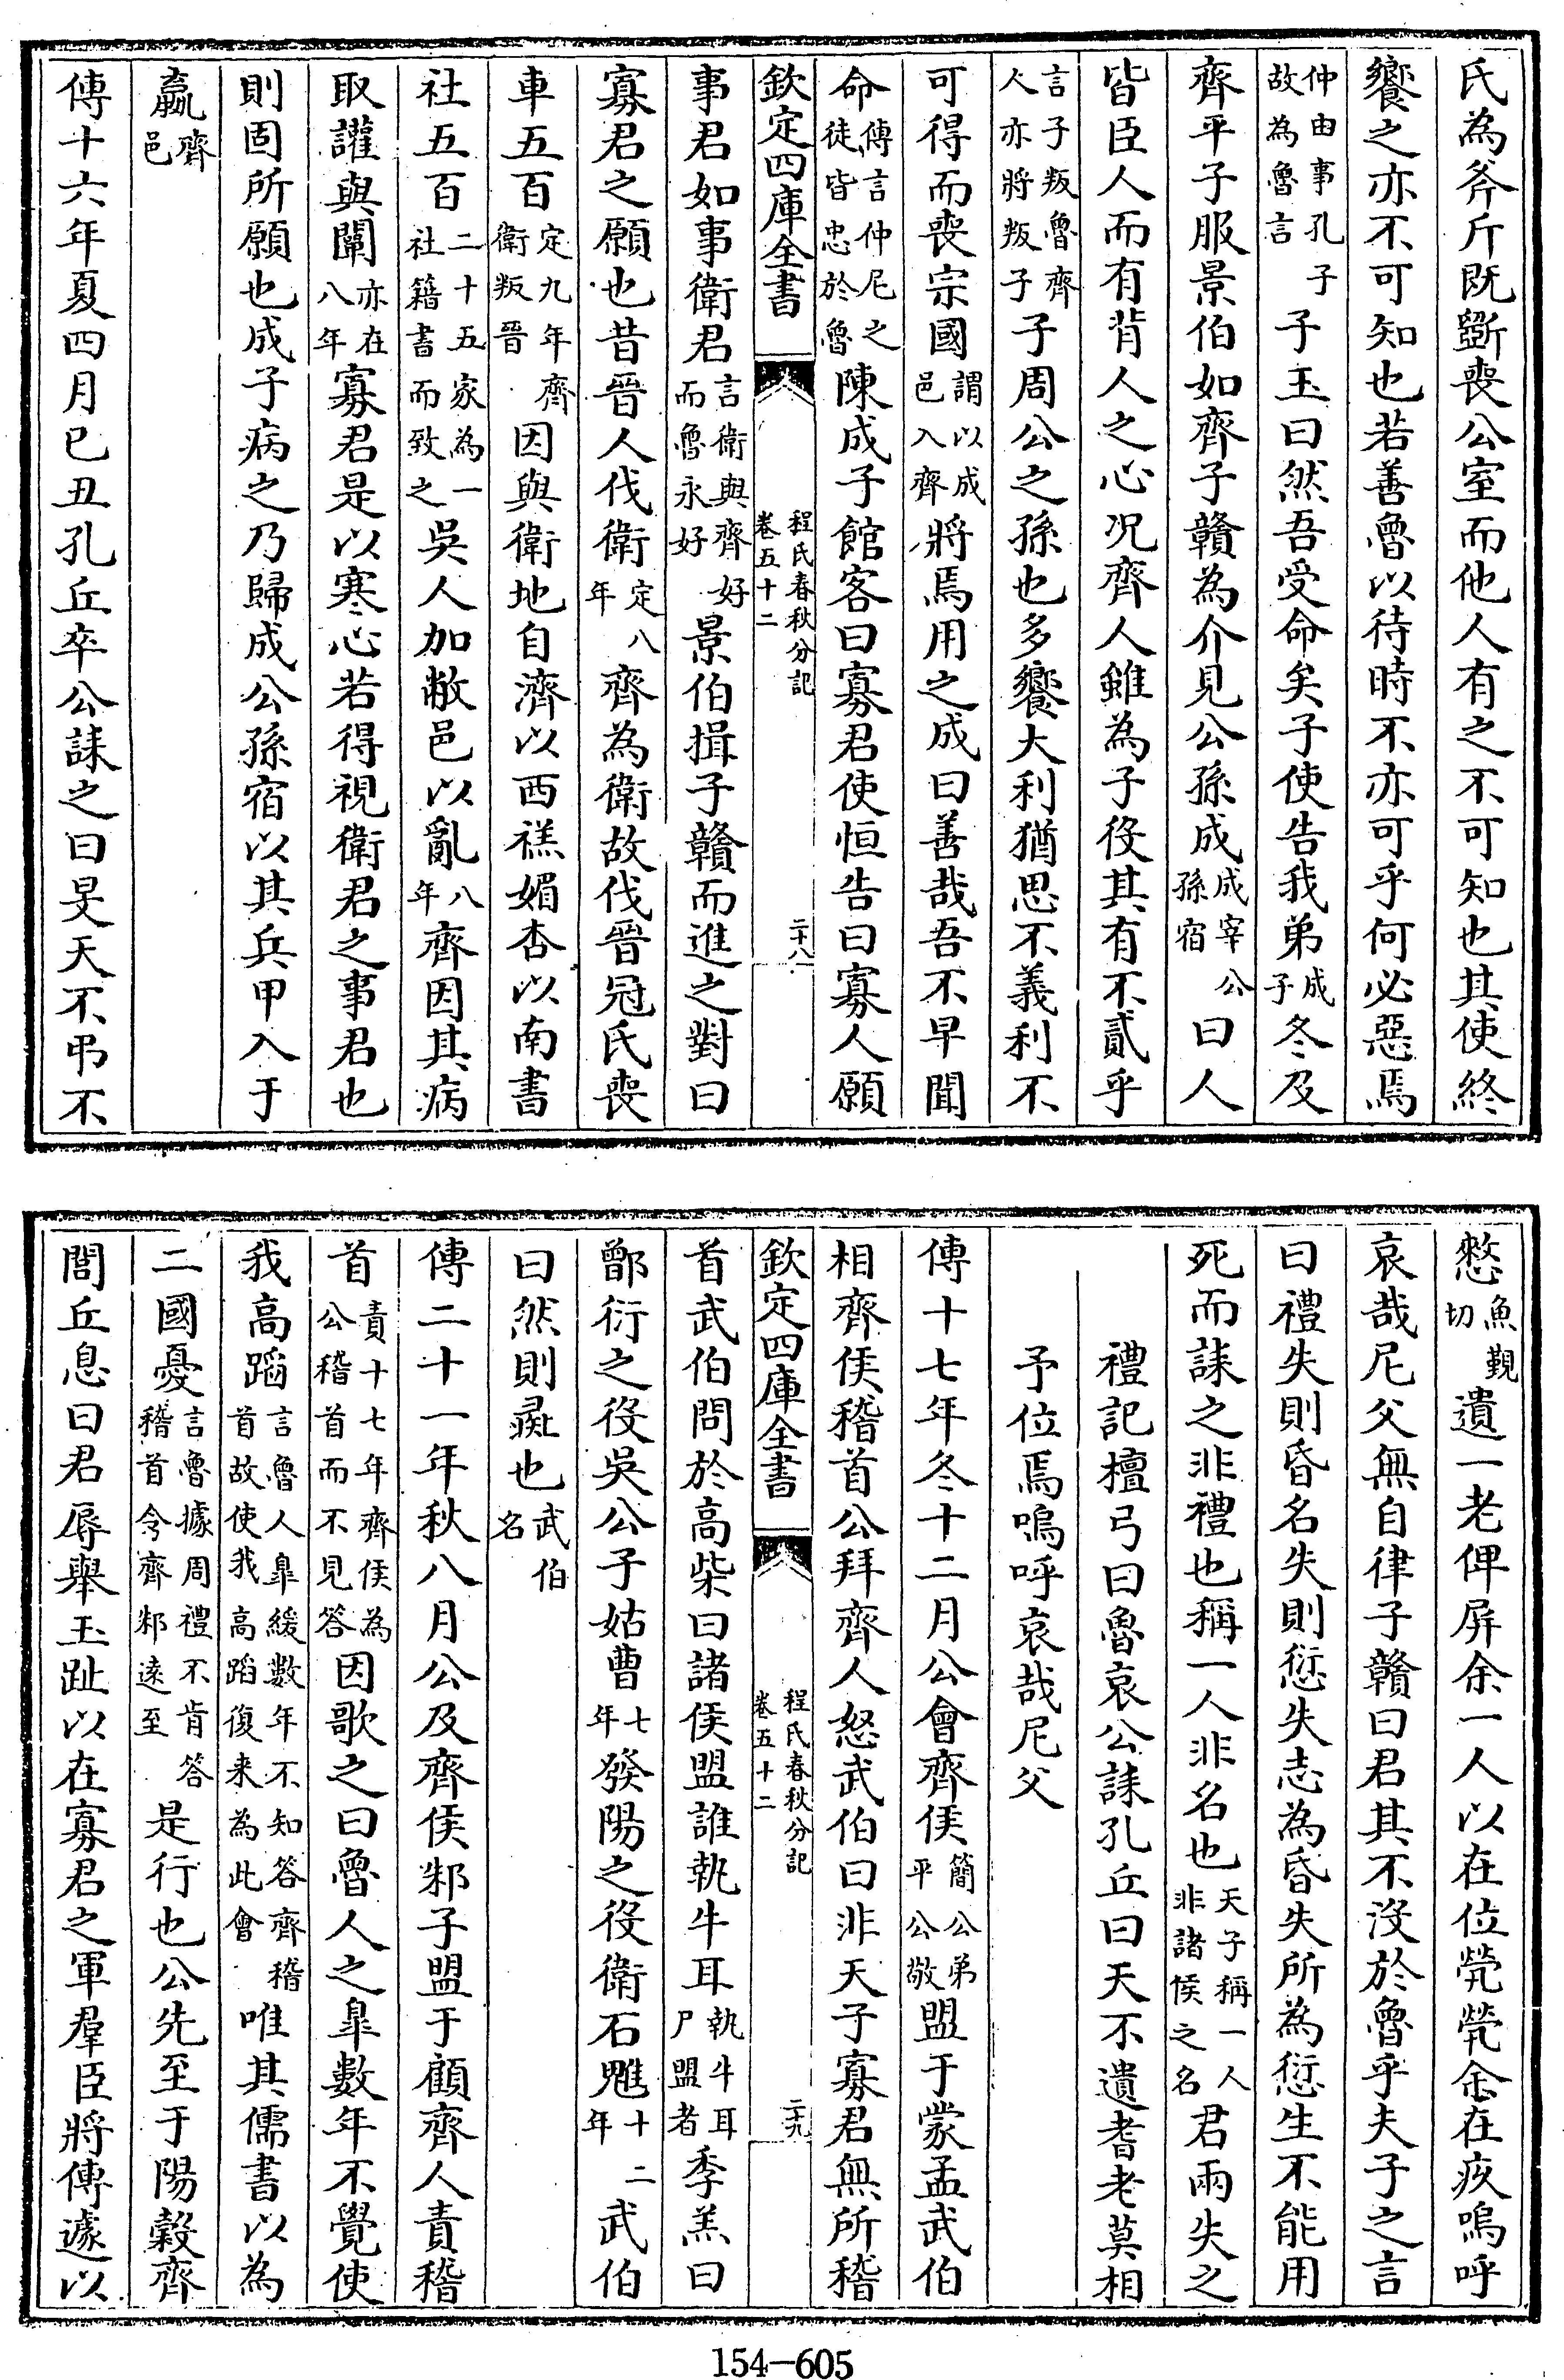 氏為斧斤既斲喪公室而他人有之不可知也其使終
饗之亦不可知也若善魯以待時不亦可乎何必惡焉
仲由事孔子故為魯言子玉曰然吾受命矣子使告我弟成子冬及
齊平子服景伯如齊子贛為介見公孫成成宰公孫宿曰人
皆臣人而有背人之心况齊人雖為子役其有不貳乎
言子叛魯齊人亦將叛子子周公之孫也多饗大利猶思不義利不
可得而喪宗國謂以成邑入齊將焉用之成曰善哉吾不早聞
命傳言仲尼之徒皆忠於魯陳成子館客曰寡君使恒告曰寡人願
欽定四庫全書
程氏春秋分記
卷五十二
二十八
事君如事衛君言衛與齊好而魯永好景伯揖子贛而進之對曰
寡君之願也昔晉人伐衛定八年齊為衛故伐晉冠氏喪
車五百定九年齊衛叛晉因與衛地自濟以西禚媚杏以南書
社五百二十五家為一社籍書而致之吳人加敝邑以亂八年齊因其病
取讙與闡亦在八年寡君是以寒心若得視衛君之事君也
則固所願也成子病之乃歸成公孫宿以其兵甲入于
嬴齊邑
傳十六年夏四月已丑孔丘卒公誄之曰旻天不弔不
憖魚覲切遺一老俾屏余一人以在位煢煢余在疚嗚呼
哀哉尼父無自律子贛曰君其不沒於魯乎夫子之言
曰禮失則昏名失則愆失志為昏失所為愆生不能用
死而誄之非禮也稱一人非名也天子稱一人非諸侯之名君兩失之
禮記檀弓曰魯哀公誄孔丘曰天不遺耆老莫相
予位焉嗚呼哀哉尼父
傳十七年冬十二月公會齊侯簡公弟平公敬盟于蒙孟武伯
相齊侯稽首公拜齊人怒武伯曰非天子寡君無所稽
欽定四庫全書
程氏春秋分記
卷五十二
二十九
首武伯問於高柴曰諸侯盟誰執牛耳執牛耳尸盟者季羔曰
鄫衍之役吳公子姑曹七年發陽之役衛石魋十二年武伯
曰然則彘也武伯名
傳二十一年秋八月公及齊侯邾子盟于顧齊人責稽
首責十七年齊侯為公稽首而不見答因歌之曰魯人之臯數年不覺使
我高蹈言魯人臯緩數年不知答齊稽首故使我高蹈復来為此會唯其儒書以為
二國憂言魯據周禮不肯答稽首令齊邾遠至是行也公先至于陽穀齊
閭丘息曰君辱舉玉趾以在寡君之軍羣臣將傳遽以
154-605